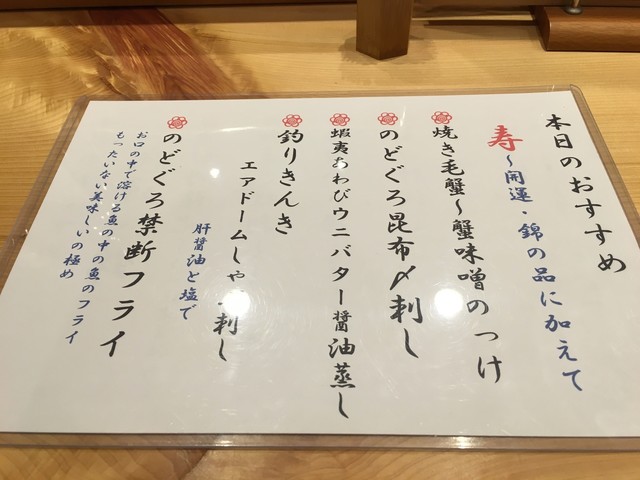 本日のおすすめ
寿～開運・錦の品に加えて
焼き毛蟹～蟹味噌のっけ
のどぐろ昆布〆刺し
蝦夷あわびウニバター醬油蒸し
釣りきんき
エアドームしゃ刺し
肝醬油と塩で
のどぐろ禁断フライ
お口の中で溶ける魚の中の魚のフライ
もったいない美味しいの極め